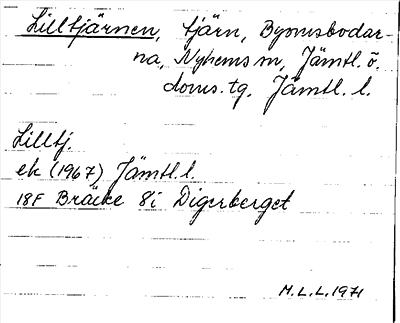 Lilltjärnen, tjärn, Byomsbodar-
na, Nyhems sn, Jämtl. ö.
doms.tg, Jämtl. l.
Lilltj.
ek (1967) Jämtl. l.
18F Bräcke 8i Digerberget
M.L.L. 1971